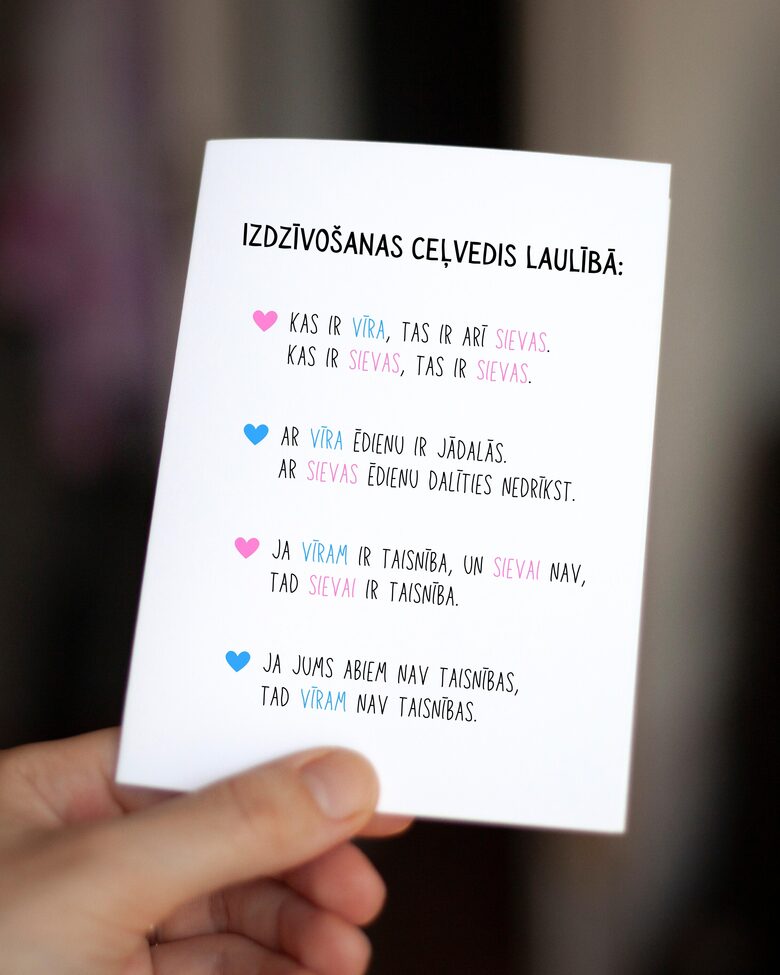 IZDZĪVOŠANAS CEĻVEDIS LAULĪBĀ:
KAS IR VĪRA, TAS IR ARĪ SIEVAS.
KAS IR SIEVAS, TAS IR SIEVAS.
AR VĪRA ĒDIENU IR JĀDALĀS.
AR SIEVAS ĒDIENU DALĪTIES NEDRĪKST.
JA VĪRAM IR TAISNĪBA, UN SIEVAI NAV,
TAD SIEVAI IR TAISNĪBA.
JA JUMS ABIEM NAV TAISNĪBAS,
TAD VĪRAM NAV TAISNĪBAS.